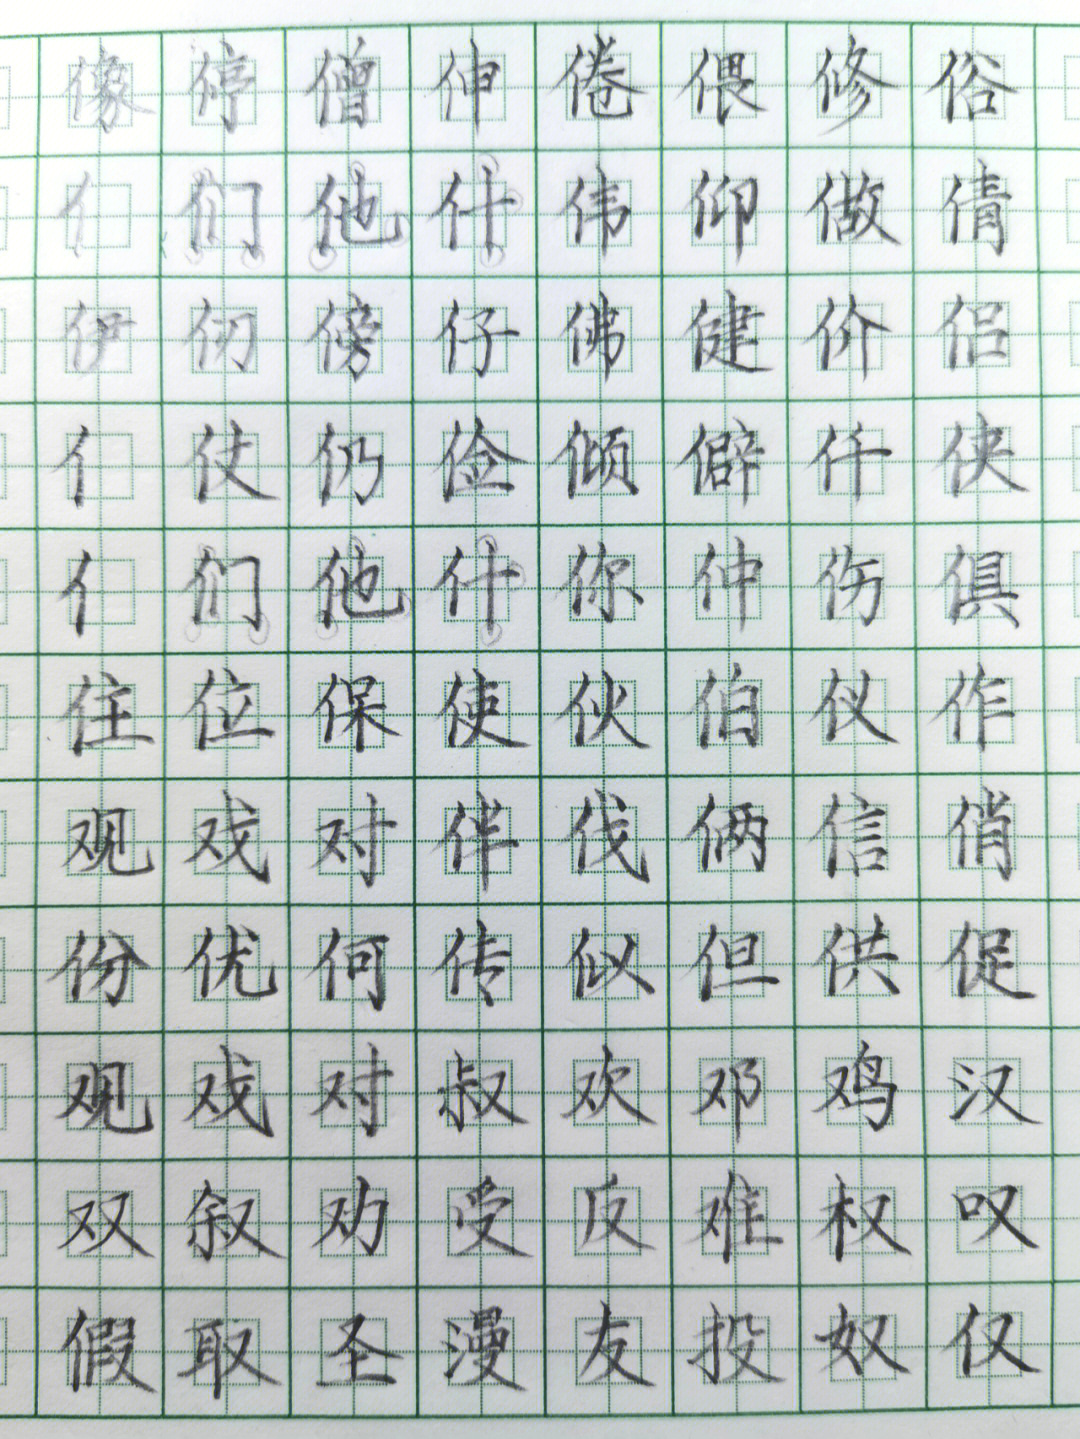 像停僧伸倦偎修俗
亻们他什伟仰做倩
伊仞傍仔佛健价侣
亻仗仍俭倾僻仟侠
亻们他什你仲伤俱
住位保使伙伯仪作
观戏对伴伐俩信俏
份优何传似但供促
观戏对叔欢邓鸡汉
双叙劝受反难权叹
假取圣漫友投奴仅